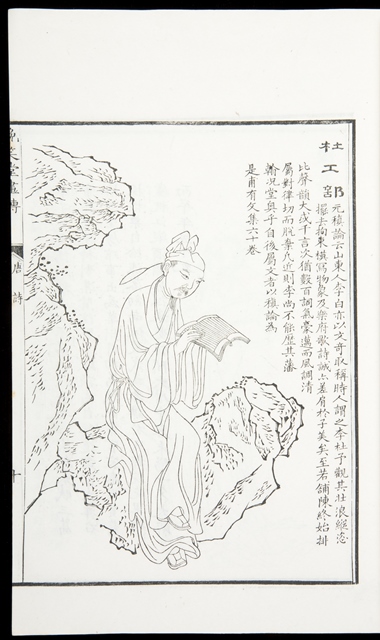 杜工部
元稹論云山東人李白亦以文奇取稱時人謂之李杜予觀其壯浪縱恣
擺去拘束模寫物象及樂府歌詩誠亦差肩於子美矣至若鋪陳終始排
比聲韻大或千言次猶數百詞氣豪邁而風調清
屬對律切而脫棄凡近則李尚不能歷其藩
翰况堂奧乎自後屬文者以稹論為
是甫有文集六十卷
笑堂畫傳
唐詩
十